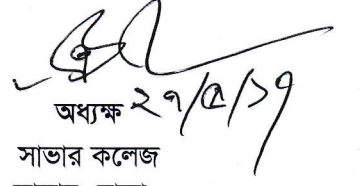 অধ্যক্ষ ২৭/৫/১৭
সাভার কলেজ